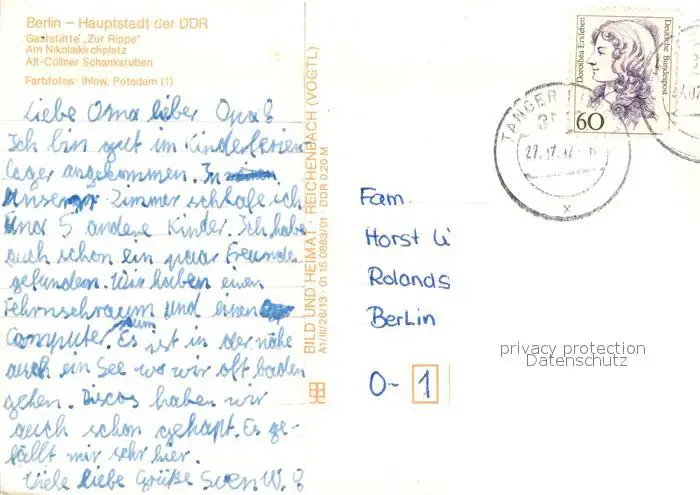 Berlin – Hauptstadt der DDR
Gaststätte „Zur Rippe"
Am Nikolaikirchplatz
Alt-Cöllner Schankstuben
Farbfotos: Ihlow, Potsdam (1)
Liebe Oma lieber Opa!
Ich bin gut im Kinderferien
lager angekommen. In
unserer Zimmer schlafe ich
und 5 andere Kinder. Ich habe
auch schon ein paar Freunde
gefunden. Wir haben einen
Fehrnsehraum und einen
Computerraum. Es ist in der nähe
auch ein See wo wir oft baden
gehen. Discos haben wir
auch schon gehapt. Es ge-
fällt mir sehr hier.
Viele liebe Grüße Sven W.!
BILD UND HEIMAT · REICHENBACH (VOGTL)
A1/III/26/13 · 01 15 0883/01 · DDR 0,20 M
Dorothea Erxleben
Deutsche Bundespost
60
TANGER
27.
Fam.
Horst W
Rolands
Berlin
O- 1
privacy protection
Datenschutz